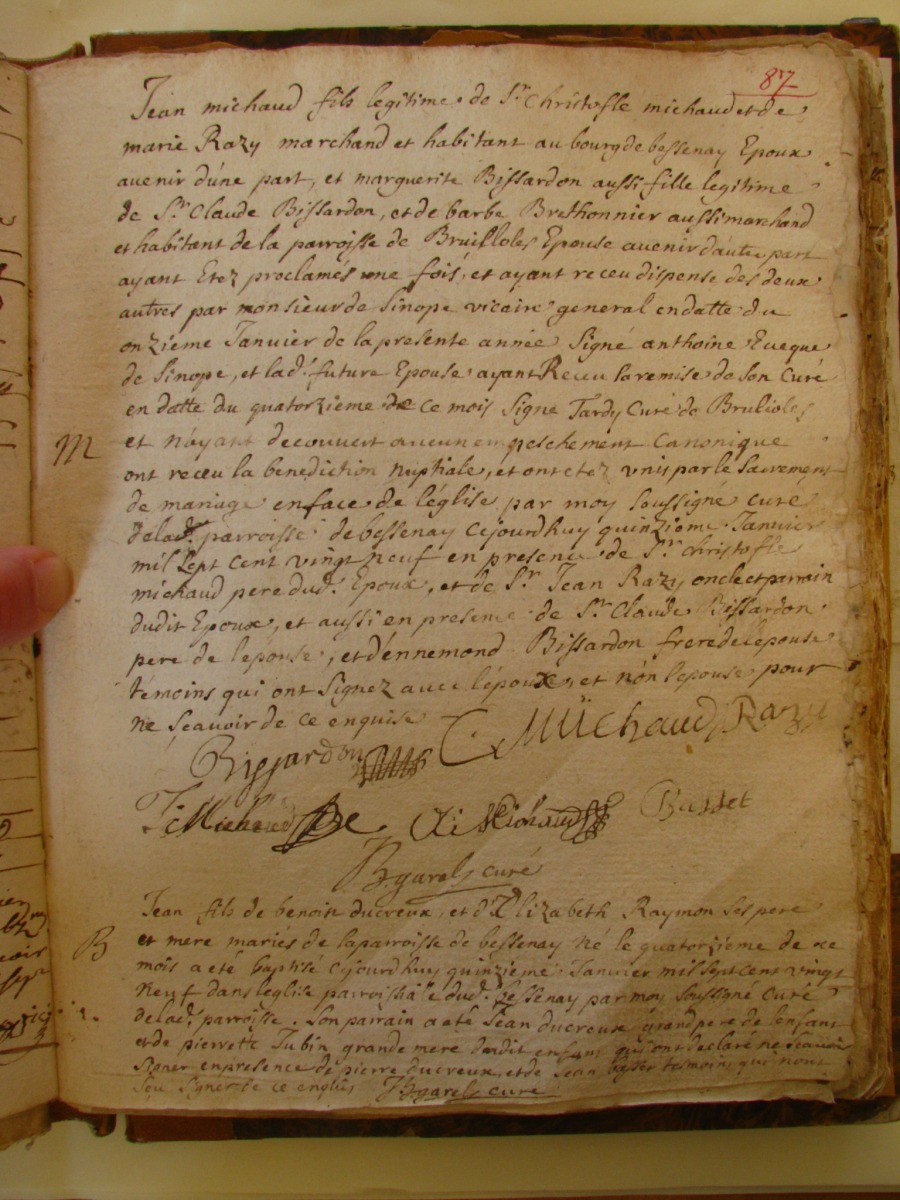 87
Jean michaud fils legitime de Sr. Christofle michaud et de
marie Razy marchand et habitant au bourg de bessenay Epoux
avenir d'une part, et marguerite Bissardon aussi fille legitime
de Sr. Claude Bissardon, et de barbe Brethonnier aussi marchand
et habitant de la parroisse de Bruilloles Epouse avenir d'autre part
ayant Etez proclamés une fois, et ayant receu dispense des deux
autres par monsieur de Sinope vicaire general en datte du
onzieme Janvier de la presente année Signé anthoine Eveque
de Sinope, et lad. future Epouse ayant Receu la remise de son Curé
en datte du quatorzieme de ce mois Signe Tardy Curé de Brulioles
M et n'ayant decouvert aucun empeschement Canonique
ont receu la benediction nuptiale, et ont etez unis par le Sacrement
de mariage en face de l'église par moy Soussigné curé
de lad. parroisse de bessenay cejourdhuy quinzieme Janvier
mil Sept cent vingt neuf en presence de Sr. christofle
michaud pere dud. Epoux, et de Sr. Jean Razy oncle et parrain
dudit Epoux, et aussi en presence de Sr. Claude Bissardon
pere de lepouse, et d'énnemond Bissardon frere de lepouse
témoins qui ont Signez avec l'époux, et nón lepouse pour
ne Scavoir de ce enquise
Bissardon C Michaud J Razy
J Michaud Michaud
curé
Jean fils de benoit ducreux, et d'Elizabeth Raymon Ses pere
B et mere mariés de la parroisse de bessenay né le quatorzieme de ce
mois a eté baptisé cejourdhuy quinzieme Janvier mil Sept cent vingt
neuf dans leglise parroissiale dud. Bessenay par moy Soussigné curé
de lad. parroisse. Son parrain a eté Jean ducreux grand pere de lenfant
et de pierrette Tubin grande mere dudit enfant qui ont declaré ne Scavoir
Signer en presence de pierre ducreux, et de Jean temoins qui nont
Sceu Signer de ce enquis curé